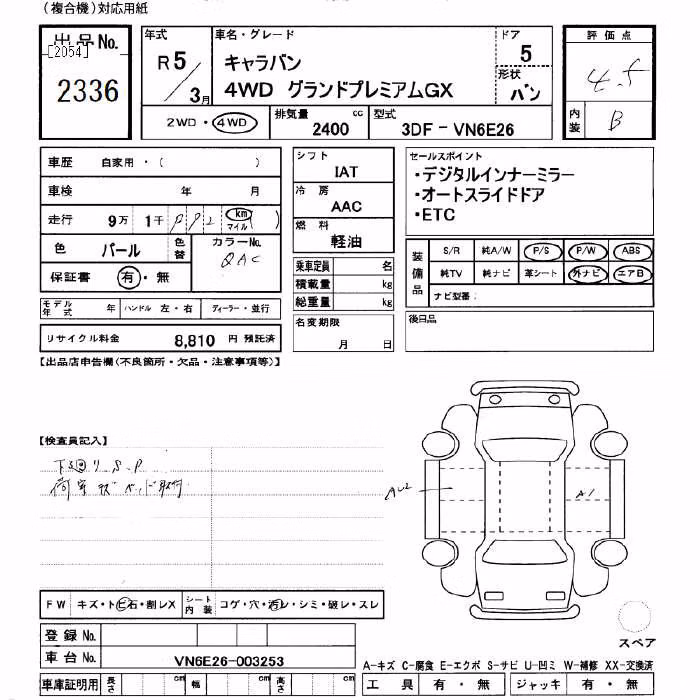 （複合機）対応用紙
出品No. 
[2054]
2336
年式
R5/3月
車名・グレード
キャラバン
4WD グランドプレミアムGX
ドア
5
形状
バン
評価点
4.5
内装
B
2WD・4WD
排気量
2400 cc
型式
3DF－VN6E26
車歴 自家用・（ ）
車検 年 月
走行 9万 1千 km マイル
色 パール 色替
カラーNo.
QAC
保証書 有・無
シフト
IAT
冷房
AAC
燃料
軽油
乗車定員 名
積載量 kg
総重量 kg
セールスポイント
・デジタルインナーミラー
・オートスライドドア
・ETC
装備品
S/R 純A/W P/S P/W ABS
純TV 純ナビ 革シート 外ナビ エアB
ナビ型番：
モデル年式 年 ハンドル 左・右 ディーラー・並行
名変期限
月 日
後日品
リサイクル料金 8,810 円 預託済
【出品店申告欄（不良箇所・欠品・注意事項等）】
【検査員記入】
下回りS.P
荷室 ベッド取付
AU2
A1
FW キズ・トビ石・割レX シート内装 コゲ・穴・汚レ・シミ・破レ・スレ
登録No.
車台No. VN6E26-003253
スペア
A-キズ C-腐食 E-エクボ S-サビ U-凹ミ W-補修 XX-交換済
車庫証明用 長さ cm 幅 cm 高さ cm
工具 有・無 ジャッキ 有・無